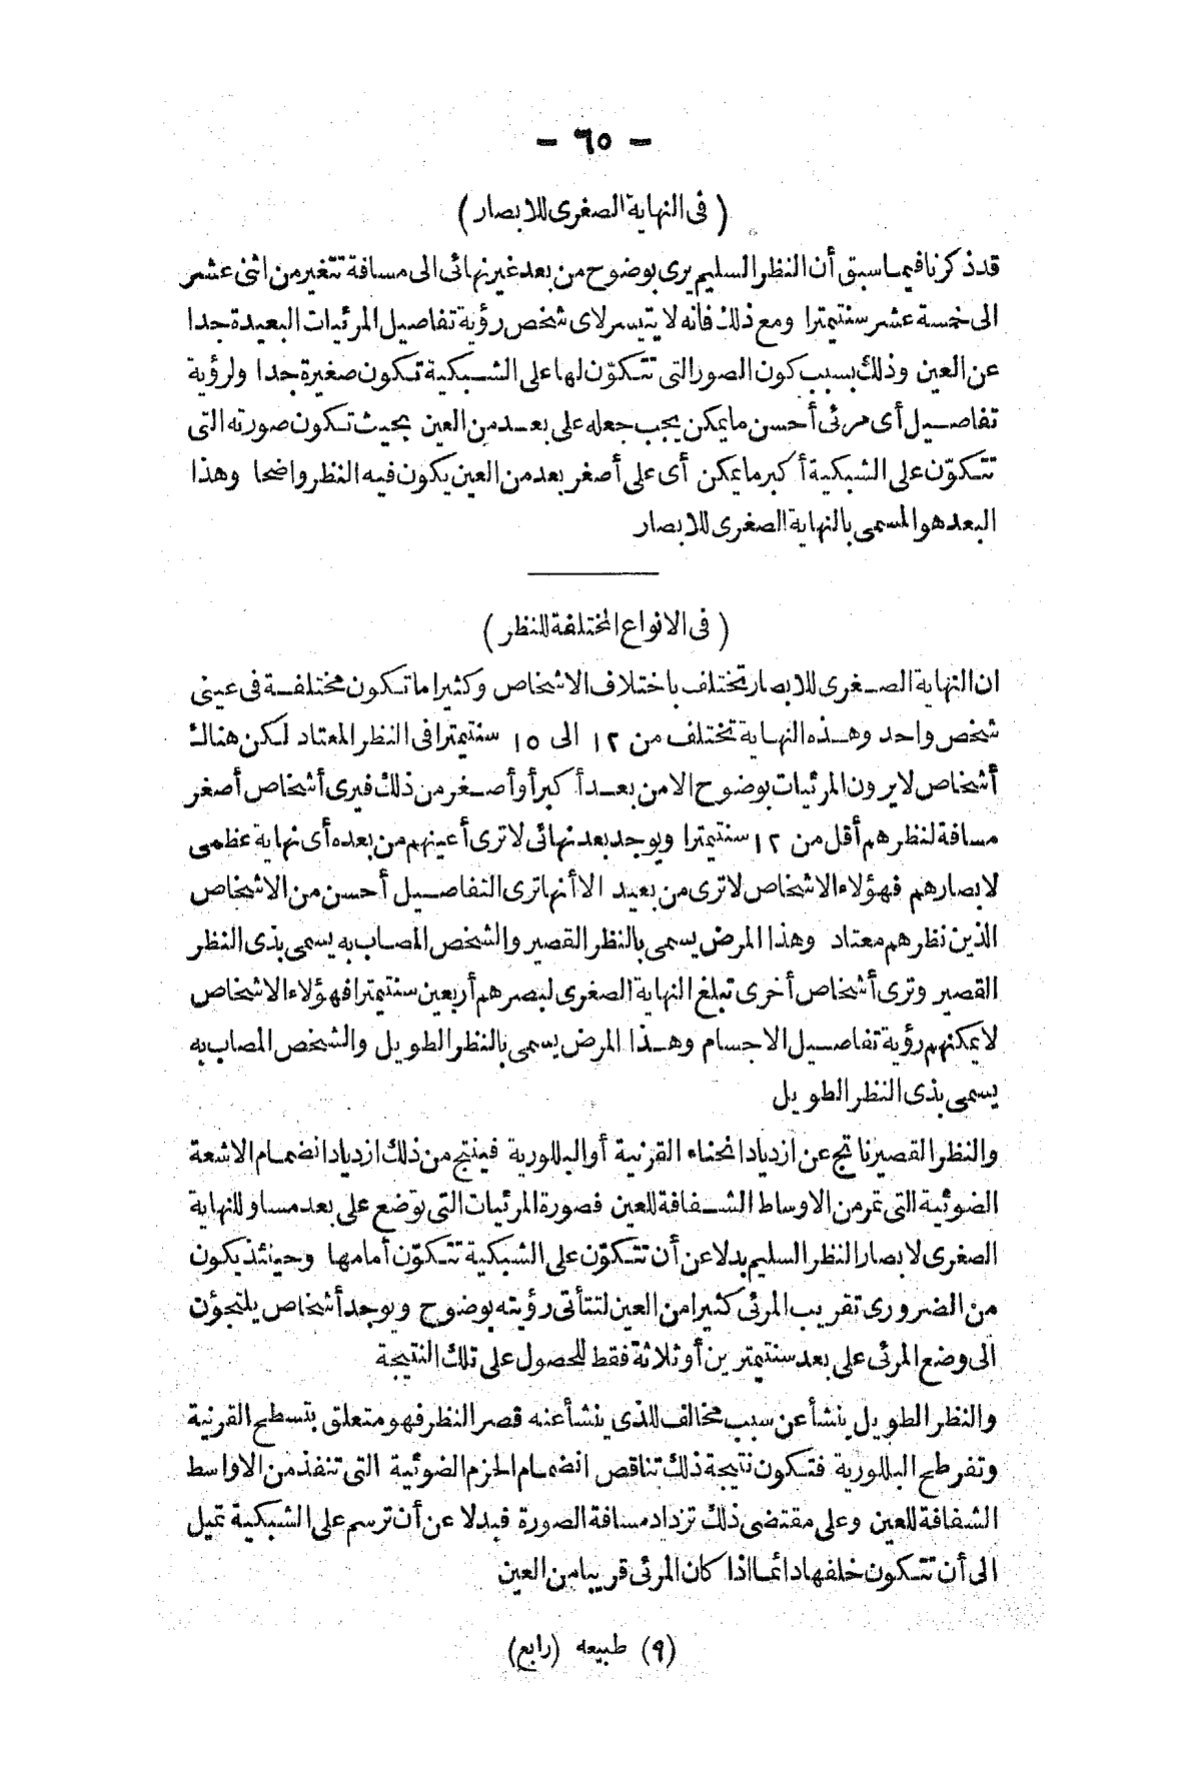 — ٦٥ —
(فى النهاية الصغرى للابصار)
قد ذكرنا فيما سبق أن النظر السليم يرى بوضوح من بعد غير نهائى الى مسافة تتغير من اثنى عشر
الى خمسة عشر سنتيمترا ومع ذلك فانه لا يتيسر لاى شخص رؤية تفاصيل المرئيات البعيدة جدا
عن العين وذلك بسبب كون الصور التى تتكوّن لها على الشبكية تكون صغيرة جدا ولرؤية
تفاصيل أى مرئى أحسن ما يمكن يجب جعله على بعد من العين بحيث تكون صورته التى
تتكوّن على الشبكية أكبر ما يمكن أى على أصغر بعد من العين يكون فيه النظر واضحا وهذا
البعد هو المسمى بالنهاية الصغرى للابصار
(فى الانواع المختلفة للنظر)
ان النهاية الصغرى للابصار تختلف باختلاف الاشخاص وكثيرا ما تكون مختلفة فى عينى
شخص واحد وهذه النهاية تختلف من ١٢ الى ١٥ سنتيمترا فى النظر المعتاد لكن هناك
أشخاص لا يرون المرئيات بوضوح الا من بعد أكبر أو أصغر من ذلك فيرى أشخاص أصغر
مسافة لنظرهم أقل من ١٢ سنتيمترا ويوجد بعد نهائى لا ترى أعينهم من بعده أى نهاية عظمى
لابصارهم فهؤلاء الاشخاص لا ترى من بعيد الا أنها ترى التفاصيل أحسن من الاشخاص
الذين نظرهم معتاد وهذا المرض يسمى بالنظر القصير والشخص المصاب به يسمى بذى النظر
القصير وترى أشخاص أخرى تبلغ النهاية الصغرى لبصرهم أربعين سنتيمترا فهؤلاء الاشخاص
لا يمكنهم رؤية تفاصيل الاجسام وهذا المرض يسمى بالنظر الطويل والشخص المصاب به
يسمى بذى النظر الطويل
والنظر القصير ناتج عن ازدياد انحناء القرنية أو البللورية فينتج من ذلك ازدياد انضمام الاشعة
الضوئية التى تمر من الاوساط الشفافة للعين فصورة المرئيات التى توضع على بعد مساو للنهاية
الصغرى لابصار النظر السليم بدلا عن أن تتكوّن على الشبكية تتكوّن أمامها وحينئذ يكون
من الضرورى تقريب المرئى كثيرا من العين لتتأتى رؤيته بوضوح ويوجد أشخاص يلتجؤن
الى وضع المرئى على بعد سنتيمترين أو ثلاثة فقط للحصول على تلك النتيجة
والنظر الطويل ينشأ عن سبب مخالف للذى ينشأ عنه قصر النظر فهو متعلق بتسطيح القرنية
وتفرطح البللورية فتكون نتيجة ذلك تناقص انضمام الحزم الضوئية التى تنفذ من الاواسط
الشفافة للعين وعلى مقتضى ذلك تزداد مسافة الصورة فبدلا عن أن ترسم على الشبكية تميل
الى أن تتكون خلفها دائما اذا كان المرئى قريبا من العين
(٩) طبيعه (رابع)